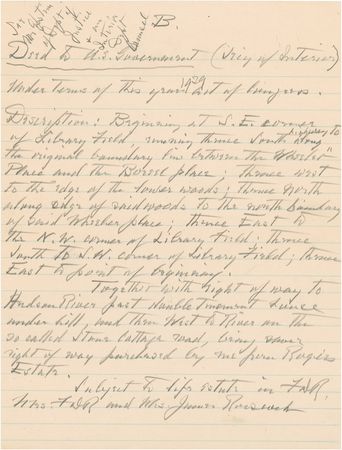 For
Mr.
of Dept of
Justice
&
Interior
Dept
Counsel
B.
Deed to U.S. Government (Sec'y of Interior)
Under terms of this years 1939 Act of Congress.
Description: Beginning at S.E. corner
of Library Field, running thence South along
the original boundary line between the Wheeler
Place and the Boreel place; thence west
to the edge of the lower woods; thence North
along edge of said woods to the north boundary
of said Wheeler place; thence East to
the N.W. corner of Library Field; thence
South to S.W. corner of Library Field; thence
East to point of beginning.
Together with right of way to
Hudson River past double tenement house
under hill, and then West to River on the
so called Stone Cottage road, being same
right of way purchased by me from Rogers
Estate.
Subject to life estate in FDR,
Mrs. FDR and Mrs. James Roosevelt